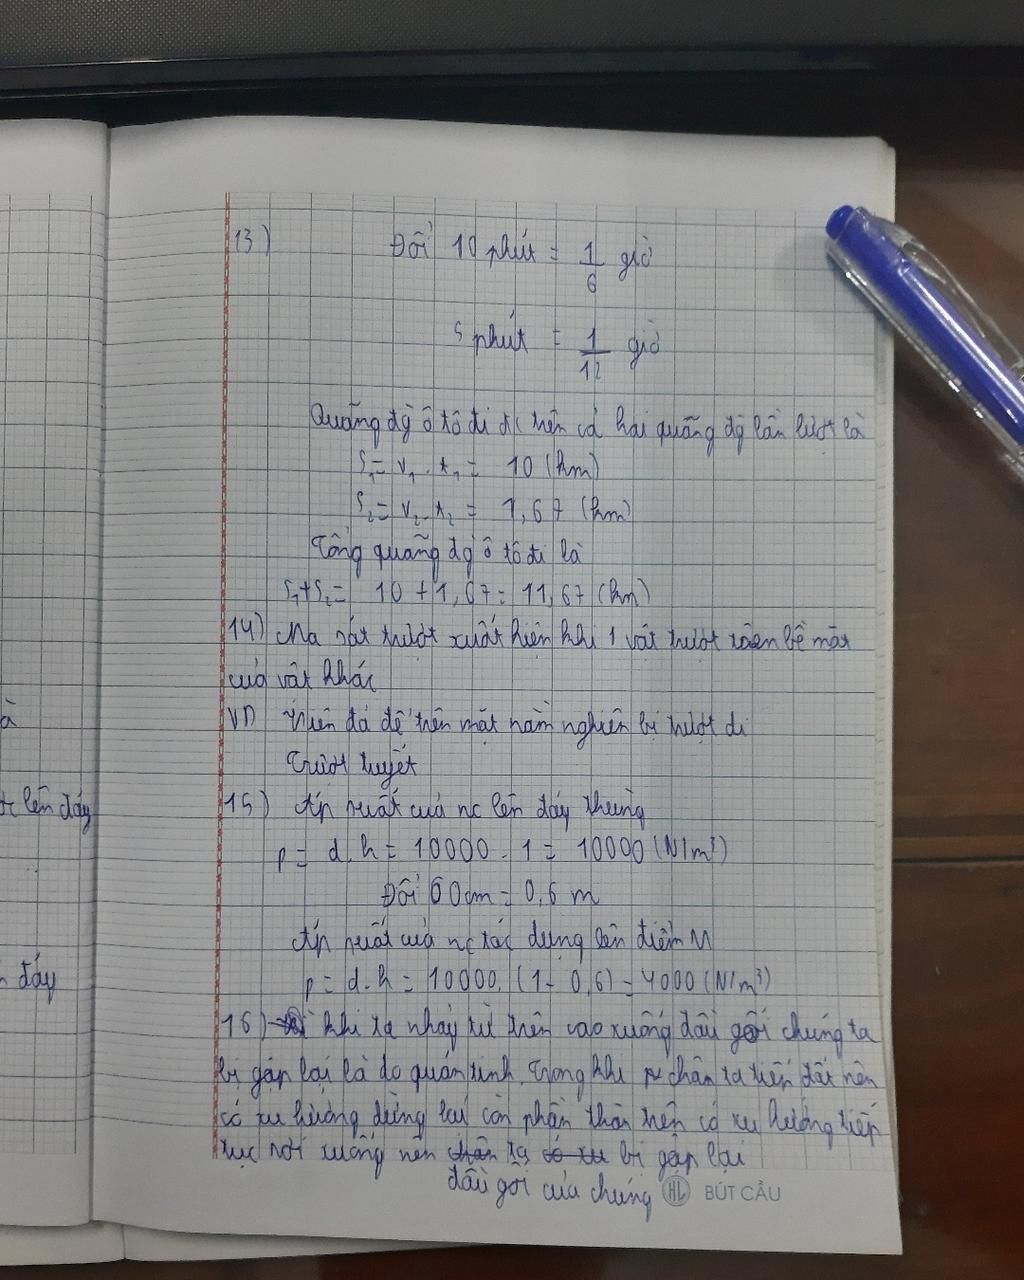 13) Đổi 10 phút = 1/6 giờ
5 phút = 1/12 giờ
Quãng đg ô tô đi đc trên cả hai quãng đg lần lượt là
S₁= v₁ . t₁ = 10 (km)
S₂= v₂ . t₂ = 1,67 (km)
Tổng quãng đg ô tô đi là
S₁+S₂= 10 + 1,67 = 11,67 (km)
14) Ma sát trượt xuất hiện khi 1 vật trượt trên bề mặt
của vật khác
VD Viên đá để trên mặt nằm nghiên bị trượt đi
Trượt tuyết
15) Áp suất của nc lên đáy thùng
p = d.h = 10000 . 1 = 10000 (N/m³)
Đổi 60cm = 0,6 m
Áp suất của nc tác dụng lên điểm M
p = d.h = 10000. (1- 0,6) = 4000 (N/m³)
16) khi ta nhảy từ trên cao xuống đầu gối chúng ta
bị gập lại là do quán tính. Trong khi chân ta tiếp đất nên
có xu hướng dừng lại còn phần thân trên có xu hướng tiếp
tục rơi xuống nên chân ta có xu bị gập lại
đầu gối của chúng
HL BÚT CẦU
à
lên đáy
đáy